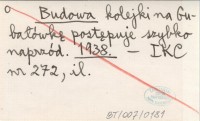 Budowa kolejki na Gu-
bałówkę postępuje szybko
naprzód. 1938. – IKC
nr 272, il.
BT/007/0181